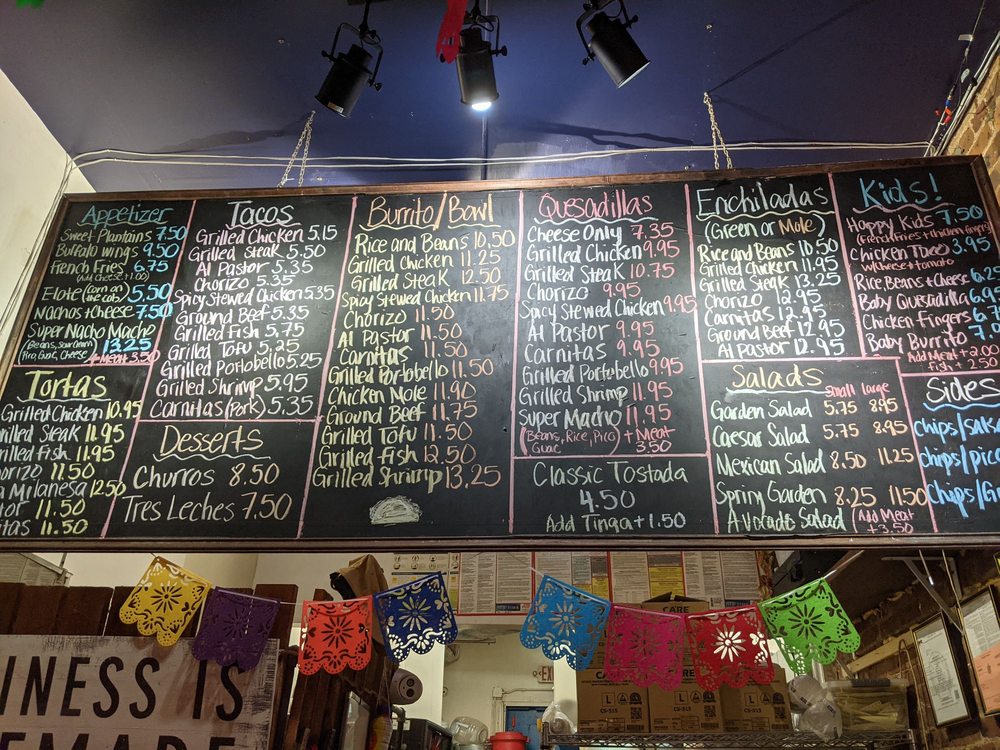 Appetizer
Sweet Plantains 7.50
Buffalo wings 9.50
French Fries 6.75
(Add Cheese 1.00)
Elote (corn on the cob) 5.50
Nachos + cheese 7.50
Super Nacho Macho
(Beans, Sour Cream, 13.25
Pico, Guac, Cheese) + Meat 3.50
Tortas
Grilled Chicken 10.95
Grilled Steak 11.95
Grilled Fish 11.95
Chorizo 11.50
Milanesa 12.50
11.50
11.50
Tacos
Grilled Chicken 5.15
Grilled Steak 5.50
Al Pastor 5.35
Chorizo 5.35
Spicy Stewed Chicken 5.35
Ground Beef 5.35
Grilled Fish 5.75
Grilled Tofu 5.25
Grilled Portobello 5.25
Grilled Shrimp 5.95
Carnitas (Pork) 5.35
Desserts
Churros 8.50
Tres Leches 7.50
Burrito/Bowl
Rice and Beans 10.50
Grilled Chicken 11.25
Grilled Steak 12.50
Spicy Stewed Chicken 11.75
Chorizo 11.50
Al Pastor 11.50
Carnitas 11.50
Grilled Portobello 11.50
Chicken Mole 11.90
Ground Beef 11.75
Grilled Tofu 11.50
Grilled Fish 12.50
Grilled Shrimp 13.25
Quesadillas
Cheese Only 7.35
Grilled Chicken 9.95
Grilled Steak 10.75
Chorizo 9.95
Spicy Stewed Chicken 9.95
Al Pastor 9.95
Carnitas 9.95
Grilled Portobello 9.95
Grilled Shrimp 11.95
Super Macho 11.95
(Beans, Rice, Pico) + Meat
Guac 3.50
Classic Tostada
4.50
Add Tinga + 1.50
Enchiladas
(Green or Mole)
Rice and Beans 10.50
Grilled Chicken 11.95
Grilled Steak 13.25
Chorizo 12.95
Carnitas 12.95
Ground Beef 12.95
Al Pastor 12.95
Salads
small large
Garden Salad 5.75 8.95
Caesar Salad 5.75 8.95
Mexican Salad 8.50 11.25
Spring Garden 8.25 11.50
Avocado Salad (Add Meat
+ 3.50
Kids!
Happy Kids 7.50
(French Fries + Chicken fingers)
Chicken Taco 3.95
w/Cheese + tomato
Rice Beans + Cheese 6.25
Baby Quesadilla 6.95
Chicken Fingers 6.7
Baby Burrito 7.9
Add Meat + 2.00
Fish + 2.50
Sides
Chips/salsa
chips/pico
Chips/G
INESS IS
EMADE
EXIT
CARE
L
CS-515
L
CS-515